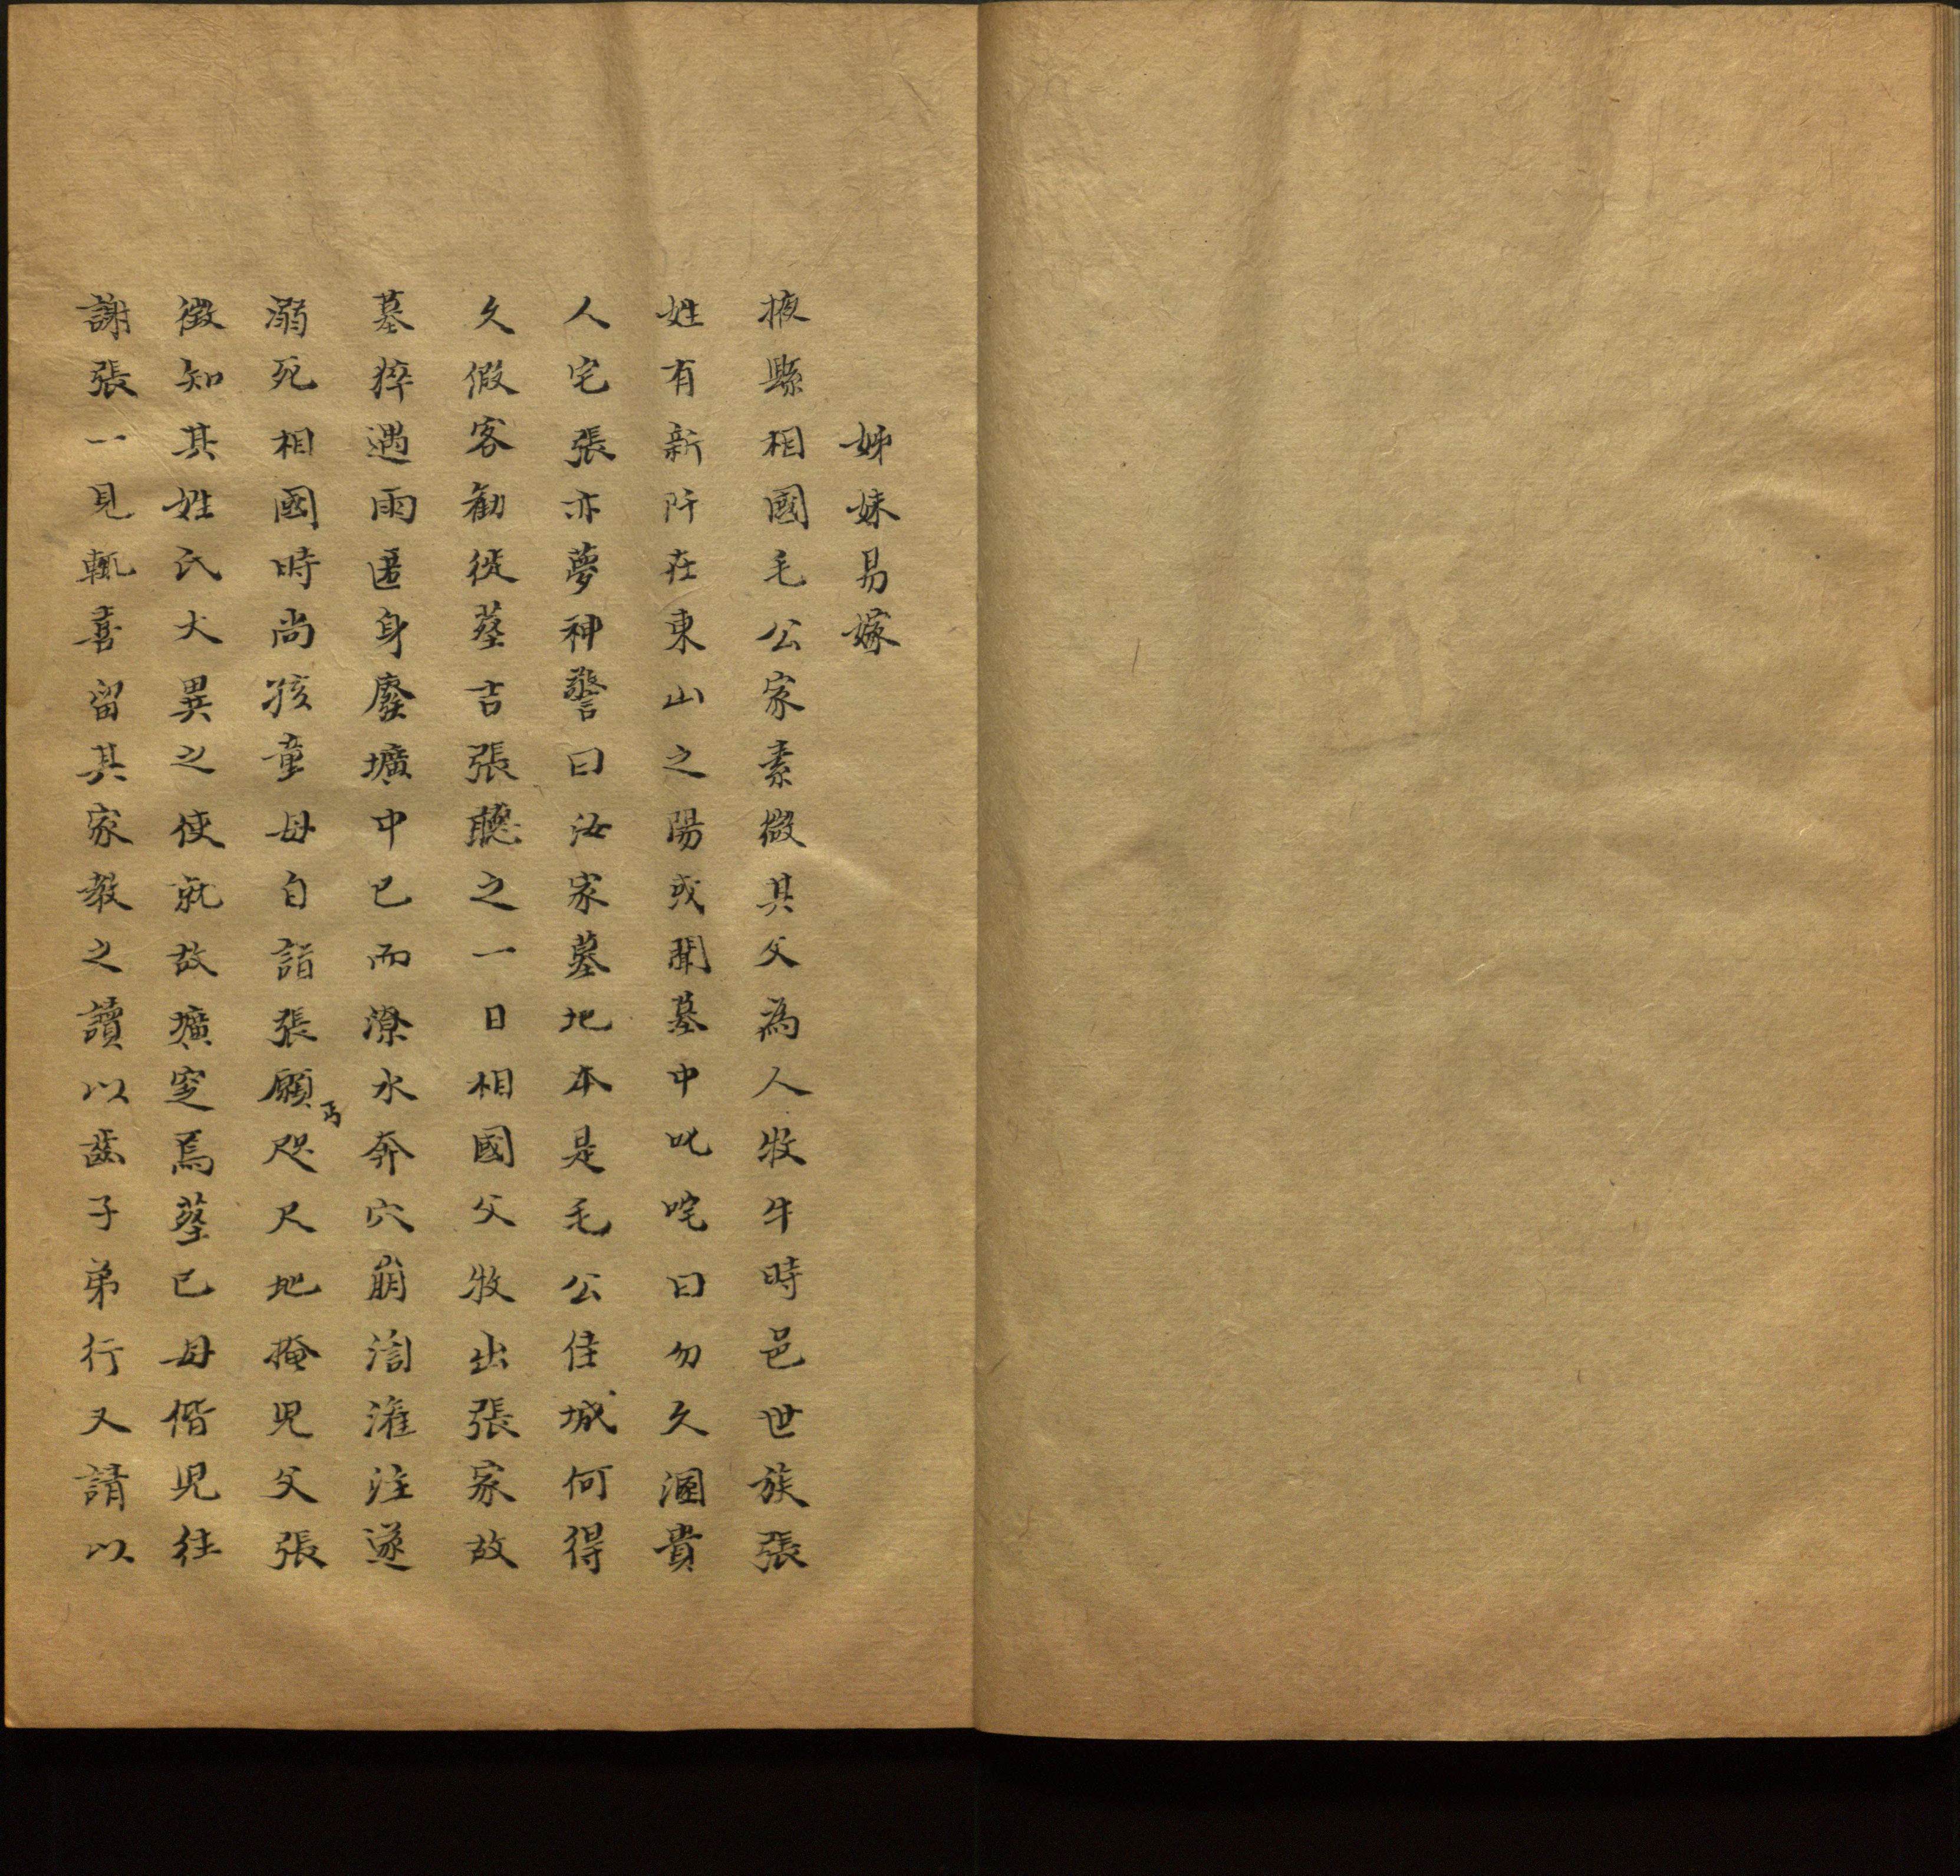 姊妹易嫁
掖縣相國毛公家素微其父為人牧牛時邑世族張
姓有新阡在東山之陽或聞墓中叱咤曰勿久溷貴
人宅張亦夢神警曰汝家墓地本是毛公佳城何得
久假客勸徙葬吉張聽之一日相國父牧出張家故
墓猝遇雨匿身廢壙中已而潦水奔穴崩渹灌注遂
溺死相國時尚孩童母自詣張願丐咫尺地掩児父張
徵知其姓氏大異之使就故壙窆焉葬已母偕児往
謝張一見輒喜留其家教之讀以齒子弟行又請以